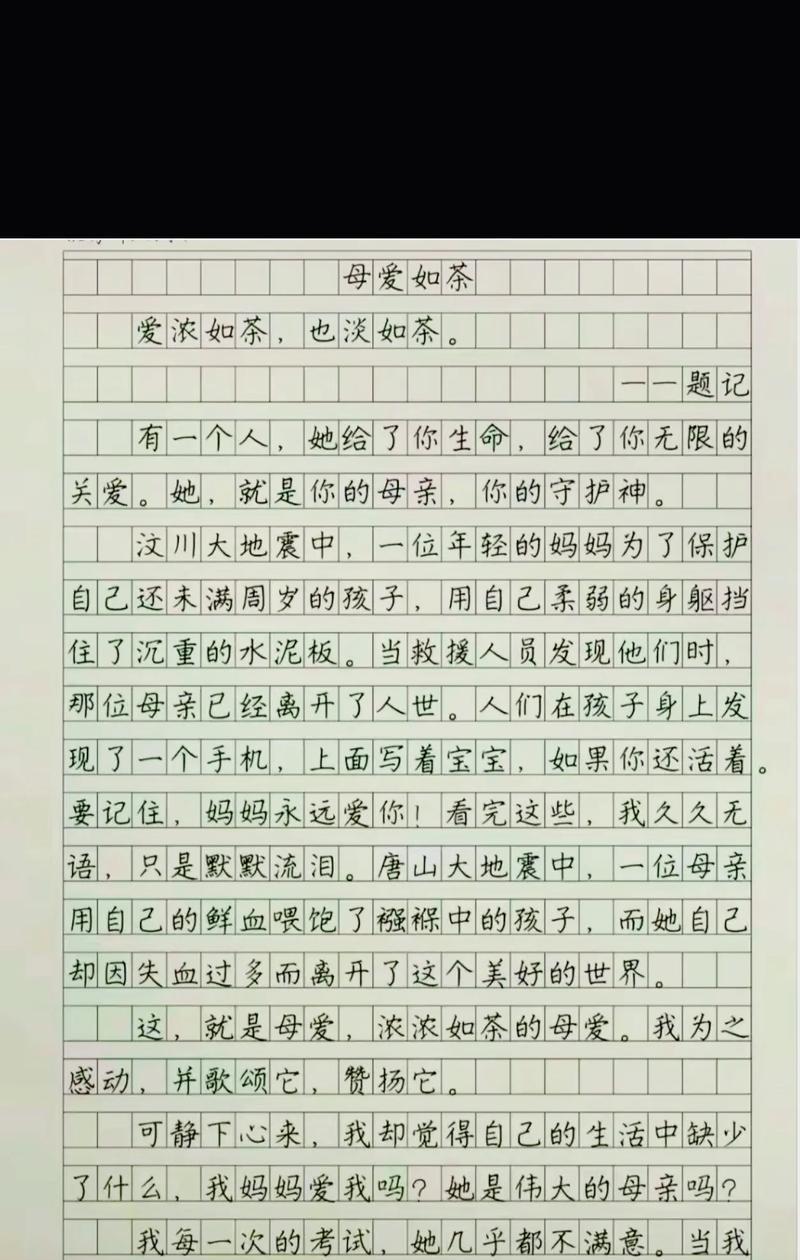 母爱如茶
爱浓如茶，也淡如茶。
——题记
有一个人，她给了你生命，给了你无限的
关爱。她，就是你的母亲，你的守护神。
汶川大地震中，一位年轻的妈妈为了保护
自己还未满周岁的孩子，用自己柔弱的身躯挡
住了沉重的水泥板。当救援人员发现他们时，
那位母亲已经离开了人世。人们在孩子身上发
现了一个手机，上面写着宝宝，如果你还活着。
要记住，妈妈永远爱你！看完这些，我久久无
语，只是默默流泪。唐山大地震中，一位母亲
用自己的鲜血喂饱了襁褓中的孩子，而她自己
却因失血过多而离开了这个美好的世界。
这，就是母爱，浓浓如茶的母爱。我为之
感动，并歌颂它，赞扬它。
可静下心来，我却觉得自己的生活中缺少
了什么，我妈妈爱我吗？她是伟大的母亲吗？
我每一次的考试，她几乎都不满意。当我